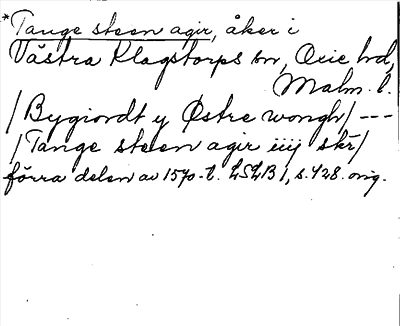 *Tange steen agir, åker i
Västra Klagstorps sn, Oxie hd,
Malm. l.
/Bygiordt y Østre wongh/ ---
/Tange steen agir iiij skr/
förra delen av 1570-t. LSLB 1, s. 428. orig.